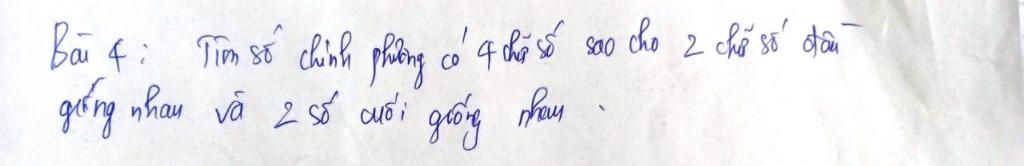 Bài 4 : Tìm số chính phương có 4 chữ số sao cho 2 chữ số đầu
giống nhau và 2 số cuối giống nhau .